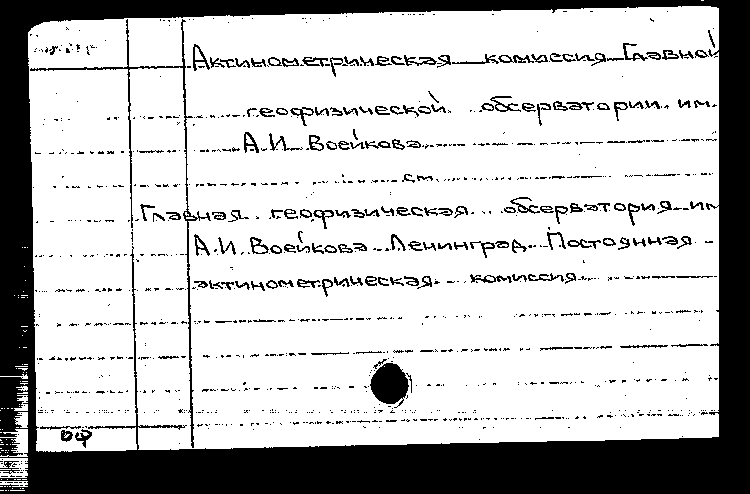 Актинометрическая комиссия Главной
геофизической обсерватории им.
А.И. Воейкова
см.
Главная геофизическая обсерватория им
А.И. Воейкова. Ленинград. Постоянная
актинометрическая комиссия.